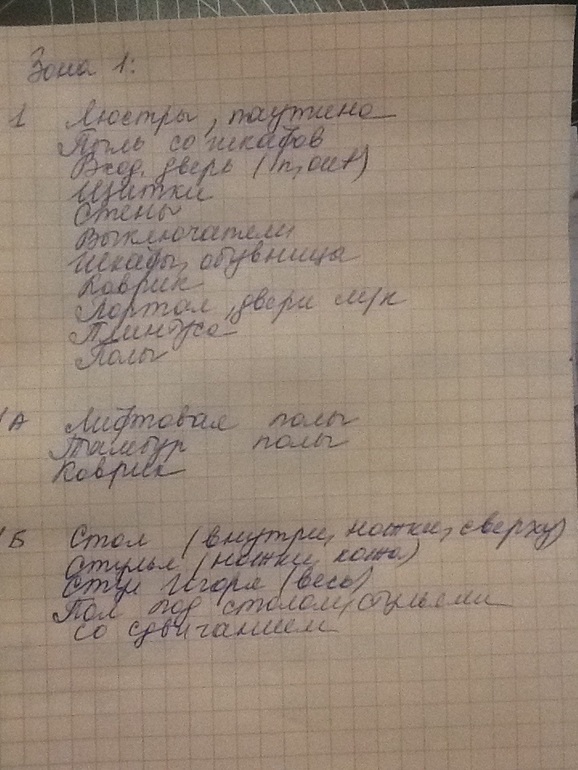 Зона 1:
1 Люстры, паутина
Пыль со шкафов
Вход. дверь (in, out)
Щитки
Стены
Выключатели
Шкафы, обувницы
Коврик
Портал, двери м/к
Плинтуса
Полы
1А Лифтовая полы
Тамбур полы
Коврик
1Б Стол (внутри, ножки, сверху)
Стулья (ножки, кожа)
Стул Игоря (весь)
Пол под столом, стульями
со сдвиганием